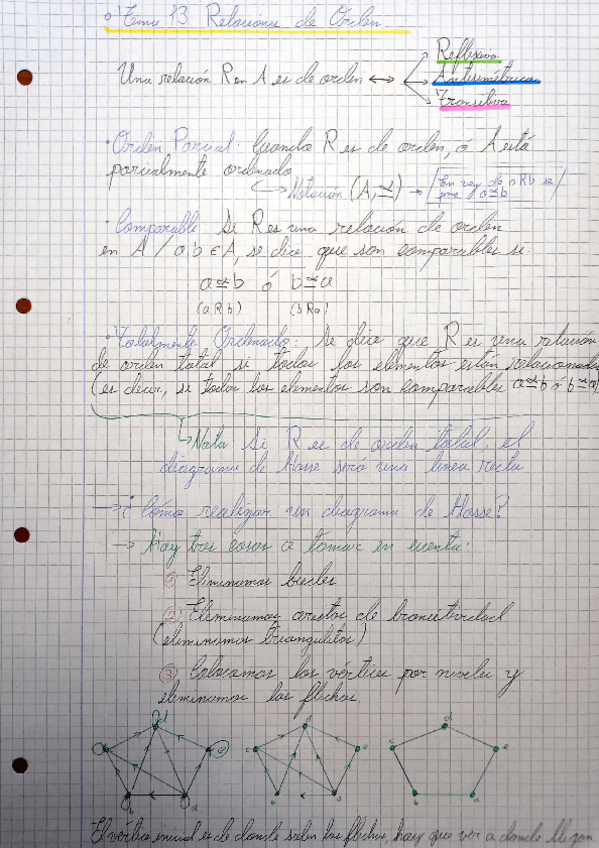 Tema 13 Relaciones de Orden
Reflexiva
Una relación R en A es de orden ↔ Antisimétrica
Transitiva
Orden Parcial: Cuando R es de orden, ó A está
parcialmente ordenado
Notación (A, ≼) → En vez de aRb se
pone a≼b
Comparable Si R es una relación de orden
en A / a b ∈ A, se dice que son comparables si:
a≼b ó b≼a
(aRb) (bRa)
Totalmente Ordenado: Se dice que R es una relación
de orden total si todos los elementos están relacionados
(es decir, si todos los elementos son comparables a≼b ó b≼a)
Nota Si R es de orden total, el
diagrama de Hasse será una linea recta
→ ¿Cómo realizar un diagrama de Hasse?
→ Hay tres cosas a tomar en cuenta:
① Eliminamos bucles
② Eliminamos aristas de transitividad
(eliminamos triangulitos)
③ Colocamos los vértices por niveles y
eliminamos las flechas.
El vértice inicial es de donde salen las flechas, hay que ver a donde llegan